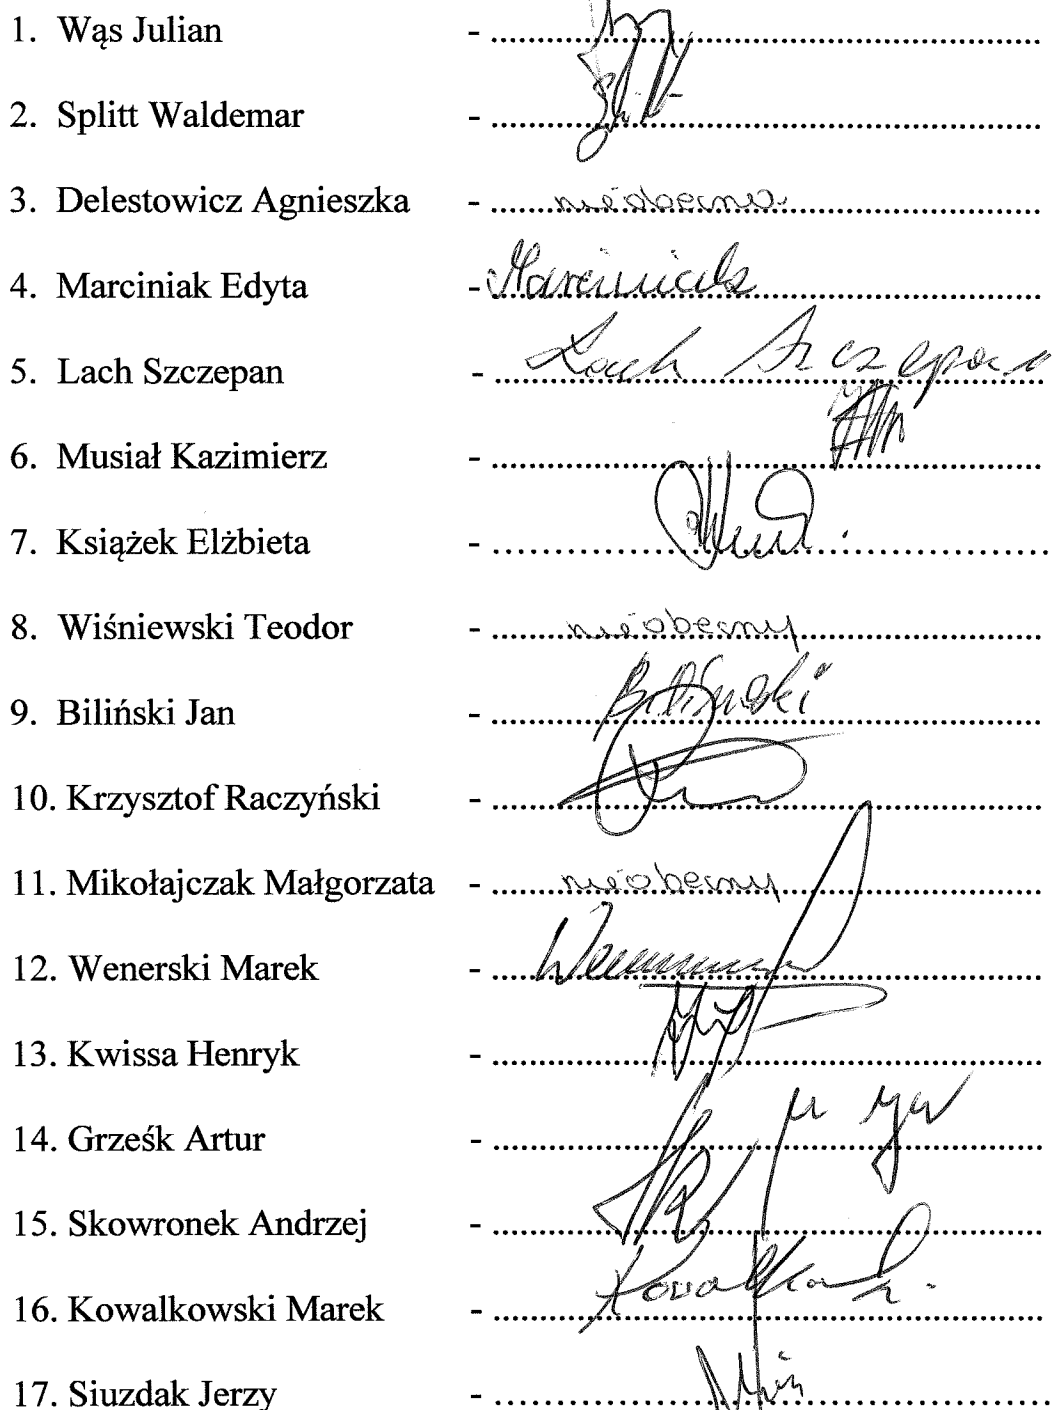 1. Wąs Julian - ........................
2. Splitt Waldemar - ........................
3. Delestowicz Agnieszka - nieobecna
4. Marciniak Edyta - Marciniak
5. Lach Szczepan - Lach Szczepan
6. Musiał Kazimierz - ........................
7. Książek Elżbieta - ........................
8. Wiśniewski Teodor - nieobecny
9. Biliński Jan - Biliński
10. Krzysztof Raczyński - ........................
11. Mikołajczak Małgorzata - nieobecny
12. Wenerski Marek - ........................
13. Kwissa Henryk - ........................
14. Grześk Artur - ........................
15. Skowronek Andrzej - ........................
16. Kowalkowski Marek - ........................
17. Siuzdak Jerzy - ........................